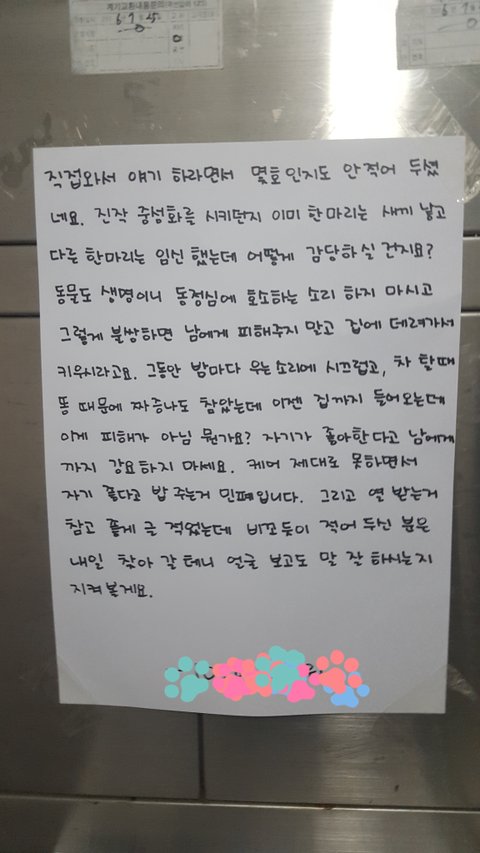 계기교환내용문의
6 7 4
직접와서 얘기 하라면서 몇호인지도 안적어 두셨
네요. 진작 중성화를 시키던지 이미 한마리는 새끼 낳고
다른 한마리는 임신 했는데 어떻게 감당하실 건지요?
동물도 생명이니 동정심에 호소하는 소리 하지 마시고
그렇게 불쌍하면 남에게 피해주지 말고 집에 데려가서
키우시라고요. 그동안 밤마다 우는소리에 시끄럽고, 차 할때
똥 때문에 짜증나도 참았는데 이젠 집까지 들어오는데
이게 피해가 아님 뭔가요? 자기가 좋아한다고 남에게
까지 강요하지 마세요. 케어 제대로 못하면서
자기 좋다고 밥 주는거 민폐입니다. 그리고 열 받는거
참고 좋게 글 적었는데 비꼬듯이 적어 두신 분은
내일 찾아 갈 테니 얼굴 보고도 말 잘 하시는지
지켜 볼게요.